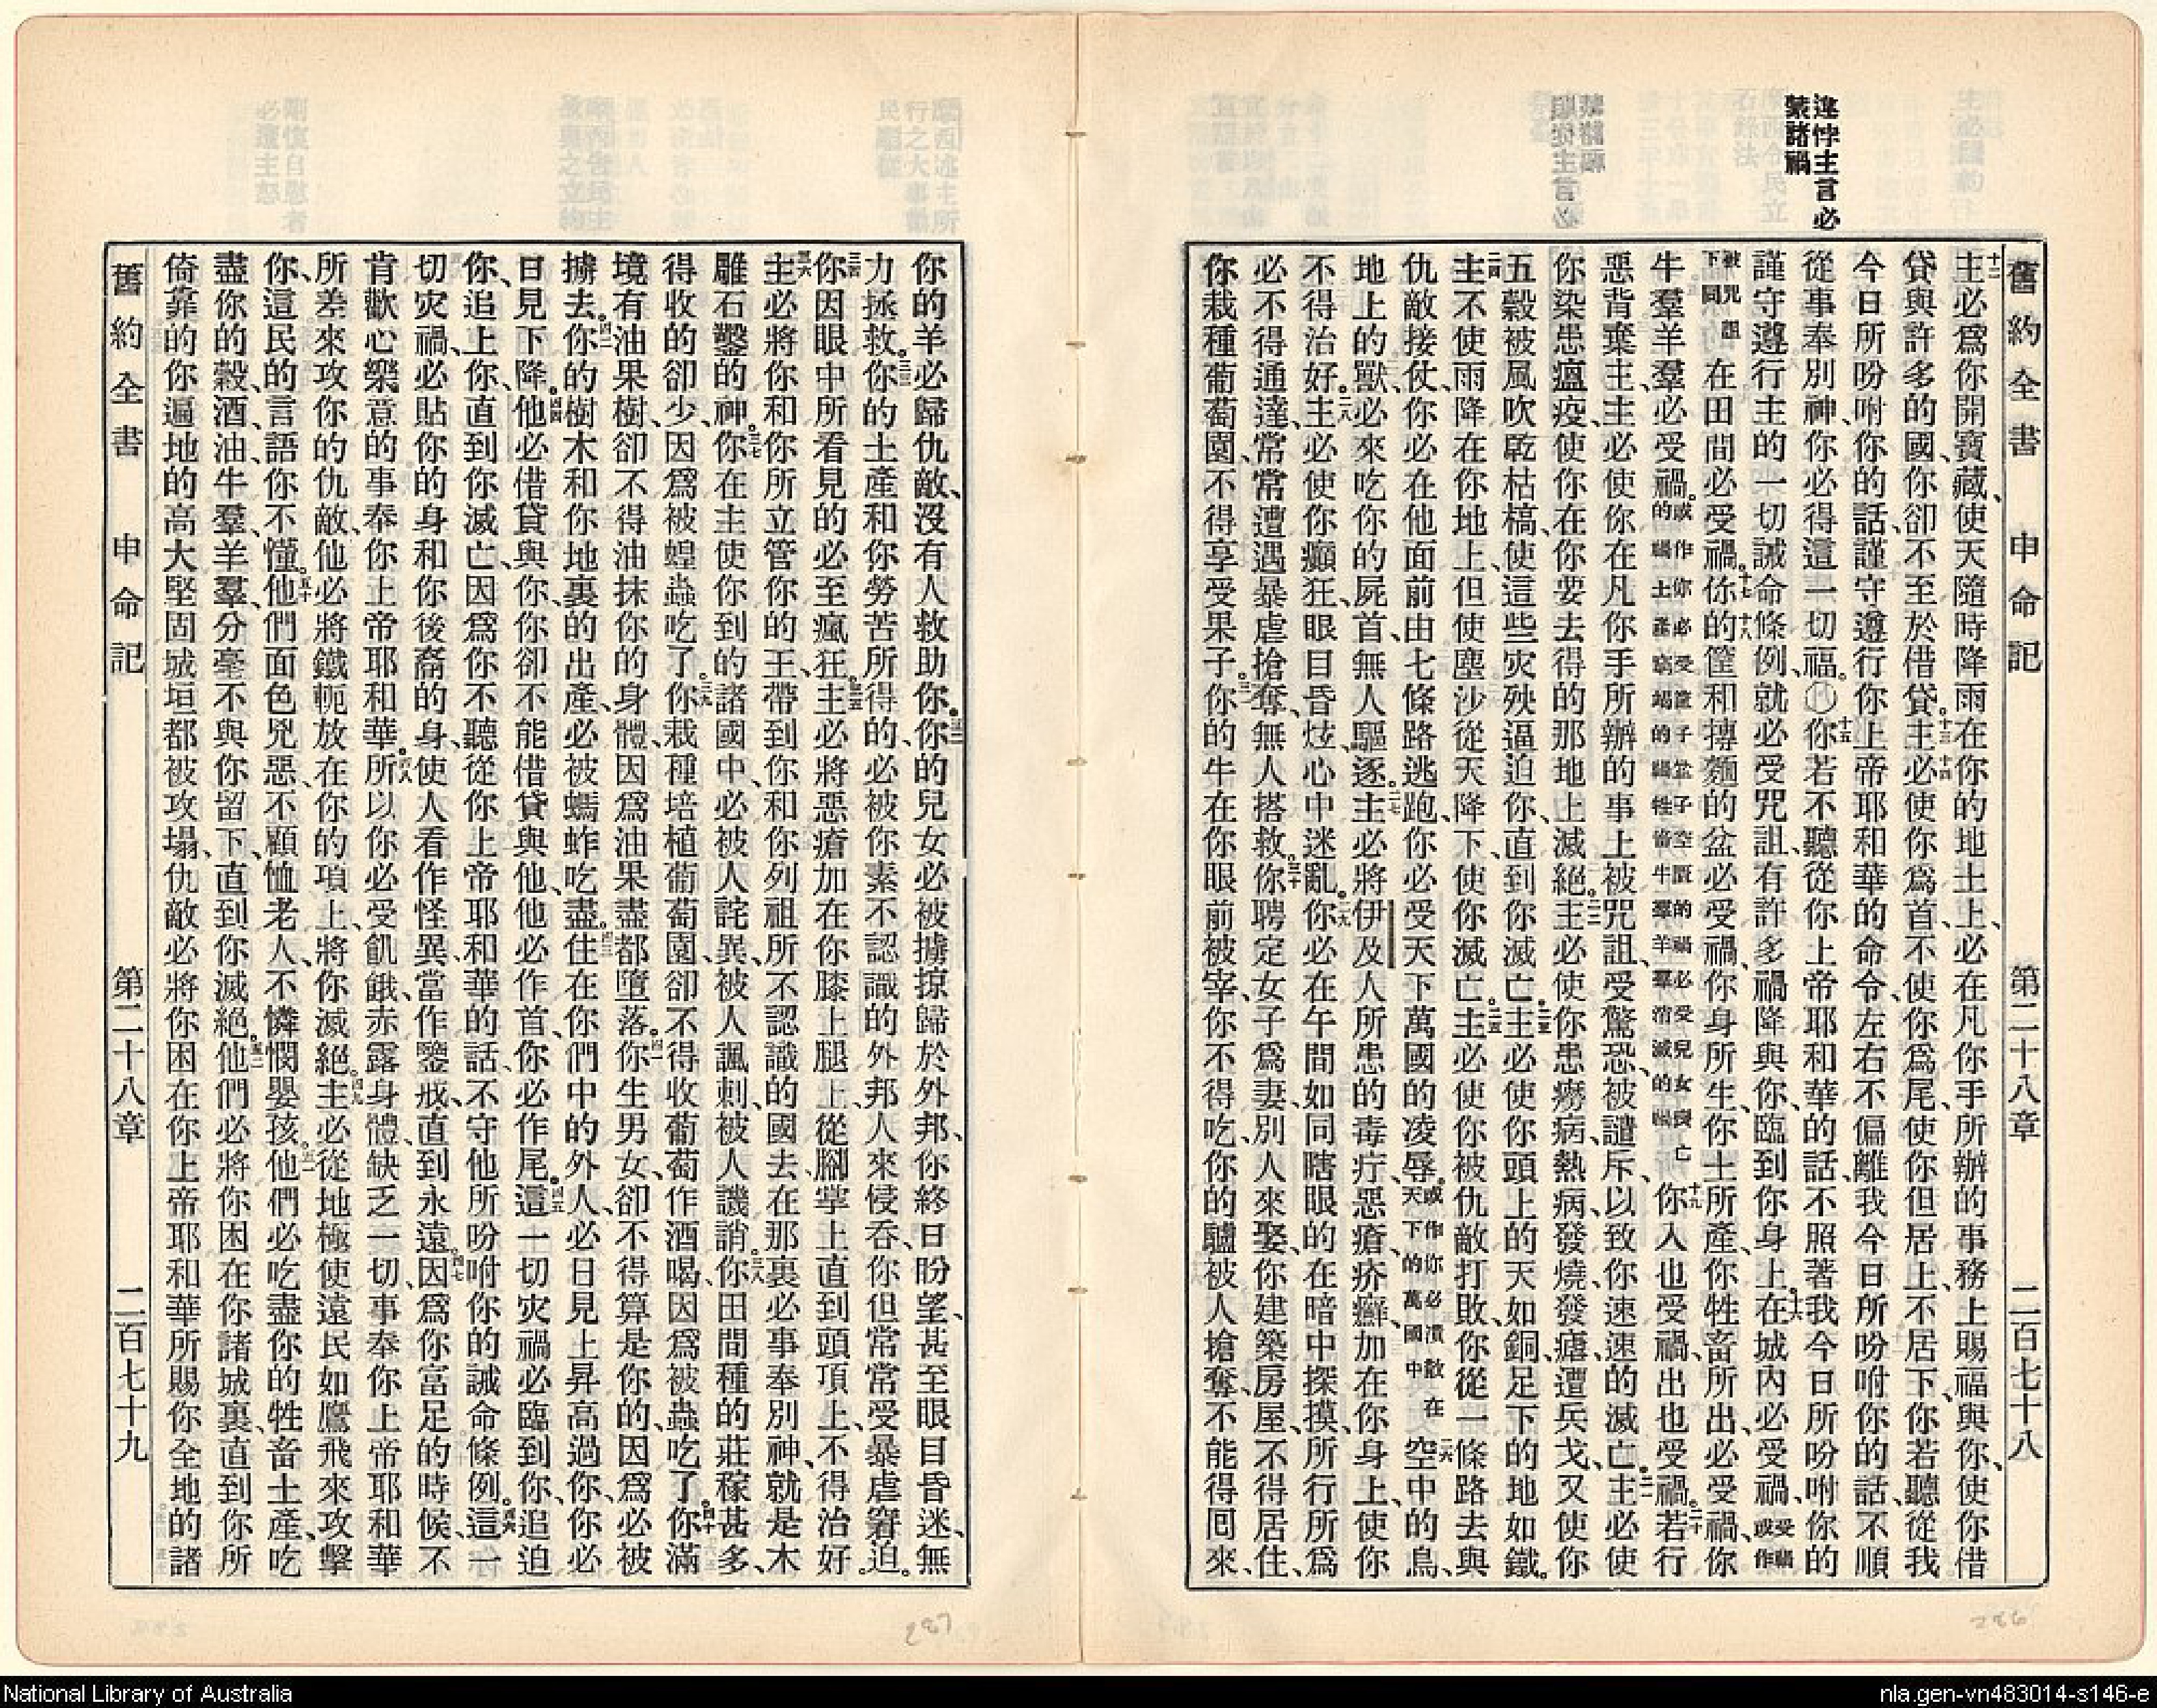 違悖主言必
蒙諸禍
舊約全書　申命記　第二十八章　二百七十八
十二主必爲你開寶藏、使天隨時降雨在你的地土上、必在凡你手所辦的事務上賜福與你、使你借
貸與許多的國、你卻不至於借貸。十三主十四必使你爲首、不使你爲尾、使你但居上、不居下、你若聽從我
今日所吩咐你的話、謹守遵行你上帝耶和華的命令、左右不偏離我今日所吩咐你的話、不順
從事奉別神、你必得這一切福。〇十五你若不聽從你上帝耶和華的話、不照著我今日所吩咐你的
謹守遵行主的一切誡命條例、就必受咒詛、有許多禍降與你、臨到你身上。十六在城內必受禍、受禍或作
被咒詛下同在田間必受禍。十七你十八的筐和摶麵的盆必受禍、你身所生、你土所產、你牲畜所出、必受禍、你
牛羣羊羣必受禍。或作你必受筐子盆子空匱的禍必受兒女喪亡的禍土產窮竭的禍牲畜牛羣羊羣消滅的禍十九你入也受禍、出也受禍。二十若行
惡背棄主、主必使你在凡你手所辦的事上被咒詛、受驚恐、被譴斥、以致你速速的滅亡。二一主必使
你染患瘟疫、使你在你要去得的那地上滅絕。二二主必使你患癆病、熱病、發燒、發瘧、遭兵戈、又使你
五穀被風吹乾枯槁、使這些灾殃逼迫你、直到你滅亡。二三主必使你頭上的天如銅、足下的地如鐵。
二四主不使雨降在你地上、但使塵沙從天降下、使你滅亡。二五主必使你被仇敵打敗、你從一條路去與
仇敵接仗、你必在他面前由七條路逃跑、你必受天下萬國的凌辱。或作你必潰散在天下的萬國中二六空中的鳥、
地上的獸、必來吃你的屍首、無人驅逐。二七主必將伊及人所患的毒疔、惡瘡、疥癬、加在你身上、使你
不得治好。二八主必使你癲狂、眼目昏炫、心中迷亂。二九你必在午間如同瞎眼的在暗中探摸、所行所爲
必不得通達、常常遭遇暴虐搶奪、無人搭救。三十你聘定女子爲妻、別人來娶、你建築房屋、不得居住、
你栽種葡萄園、不得享受果子。三一你的牛在你眼前被宰、你不得吃、你的驢被人搶奪、不能得囘來、
你的羊必歸仇敵、沒有人救助你。三二你的兒女必被擄掠歸於外邦、你終日盼望、甚至眼目昏迷、無
力拯救。三三你的土產和你勞苦所得的、必被你素不認識的外邦人來侵吞、你但常常受暴虐窘迫。
三四你因眼中所看見的必至瘋狂。三五主必將惡瘡加在你膝上腿上、從腳掌上直到頭頂上、不得治好。
三六主必將你和你所立管你的王、帶到你和你列祖所不認識的國去、在那裏必事奉別神、就是木
雕石鑿的神。三七你在主使你到的諸國中、必被人詫異、被人諷刺、被人譏誚。三八你田間種的莊稼甚多、
得收的卻少、因爲被蝗蟲吃了。三九你栽種培植葡萄園、卻不得收葡萄作酒喝、因爲被蟲吃了。四十你滿
境有油果樹、卻不得油抹你的身體、因爲油果盡都墮落。四一你生男女、卻不得算是你的、因爲必被
擄去。四二你的樹木和你地裏的出產、必被螞蚱吃盡。四三住在你們中的外人、必日見上昇高過你、你必
日見下降。四四他必借貸與你、你卻不能借貸與他、他必作首、你必作尾。四五這一切灾禍必臨到你、追迫
你、追上你、直到你滅亡、因爲你不聽從你上帝耶和華的話、不守他所吩咐你的誡命條例。四六這一
切灾禍、必貼你的身和你後裔的身、使人看作怪異、當作鑒戒、直到永遠。四七因爲你富足的時候、不
肯歡心樂意的事奉你上帝耶和華。四八所以你必受飢餓、赤露身體、缺乏一切、事奉你上帝耶和華
所差來攻你的仇敵、他必將鐵軛放在你的項上、將你滅絕。四九主必從地極使遠民如鷹飛來攻擊
你、這民的言語你不懂。五十他們面色兇惡、不顧恤老人、不憐憫嬰孩。五一他們必吃盡你的牲畜土產、吃
盡你的穀、酒、油、牛羣、羊羣、分毫不與你留下、直到你滅絕。五二他們必將你困在你諸城裏、直到你所
倚靠的、你遍地的高大堅固城垣都被攻塌、仇敵必將你困在你上帝耶和華所賜你全地的諸
舊約全書　申命記　第二十八章　二百七十九
286
287
National Library of Australia
nla.gen-vn483014-s146-e